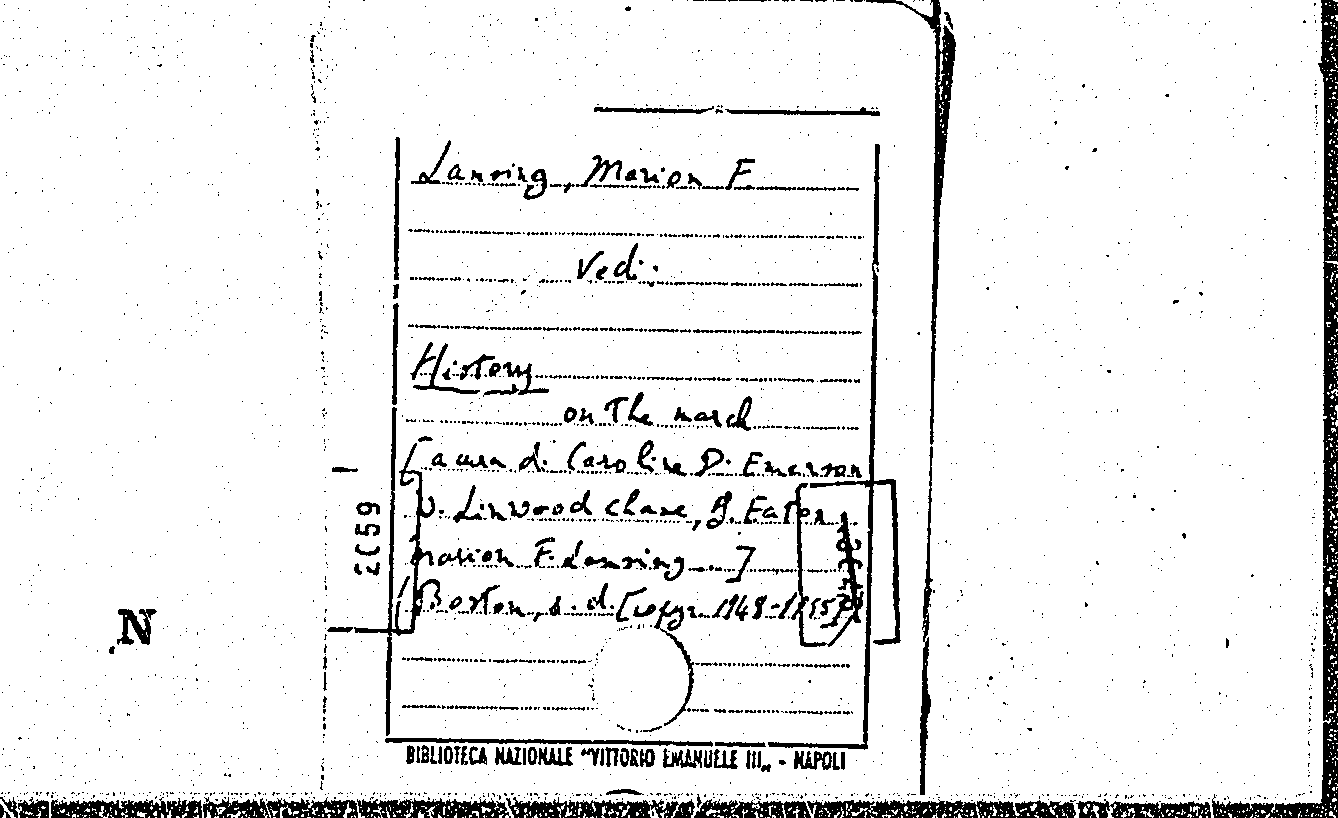 Lansing, Marion F.
Vedi:
History
on The march
[a cura di Caroline D. Emerson
W. Linwood Chase, J. Eaton
Marion F. Lansing...]
Boston, s. d. [copyr. 1948-1955]
2059
N
BIBLIOTECA NAZIONALE "VITTORIO EMANUELE III„ - NAPOLI